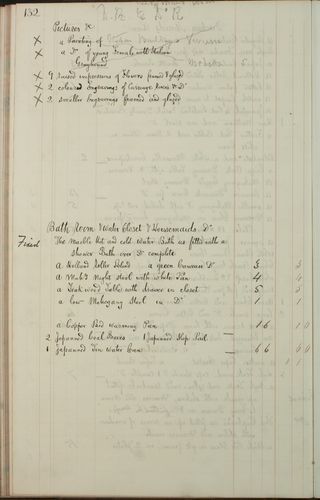 132
Pictures &c
X a Painting of
X a Do of young Female with Italian
Greyhound
X 9 tinted impressions of Flowers framed & glazed
X 2 coloured Engravings of Carriage Horses &c Do
X 2 smaller Engravings framed and glazed
Bath Room & Water Closet & Housemaids Do
Fixed The Marble Hot and cold Water Bath as fitted with a
Shower Bath over Do complete
a Holland Roller Blind a green Do 3 3
a Night Stool with White Pan 4 4
a Teak wood Table with drawer in closet 5 5
a low Mahogany Stool in Do 1 1
a Copper Bed warming Pan 16 16
2 Japanned Coal Boxes 1 Japanned Slop Pail
1 Japanned Tin water Can 6 6 6 6
1 1